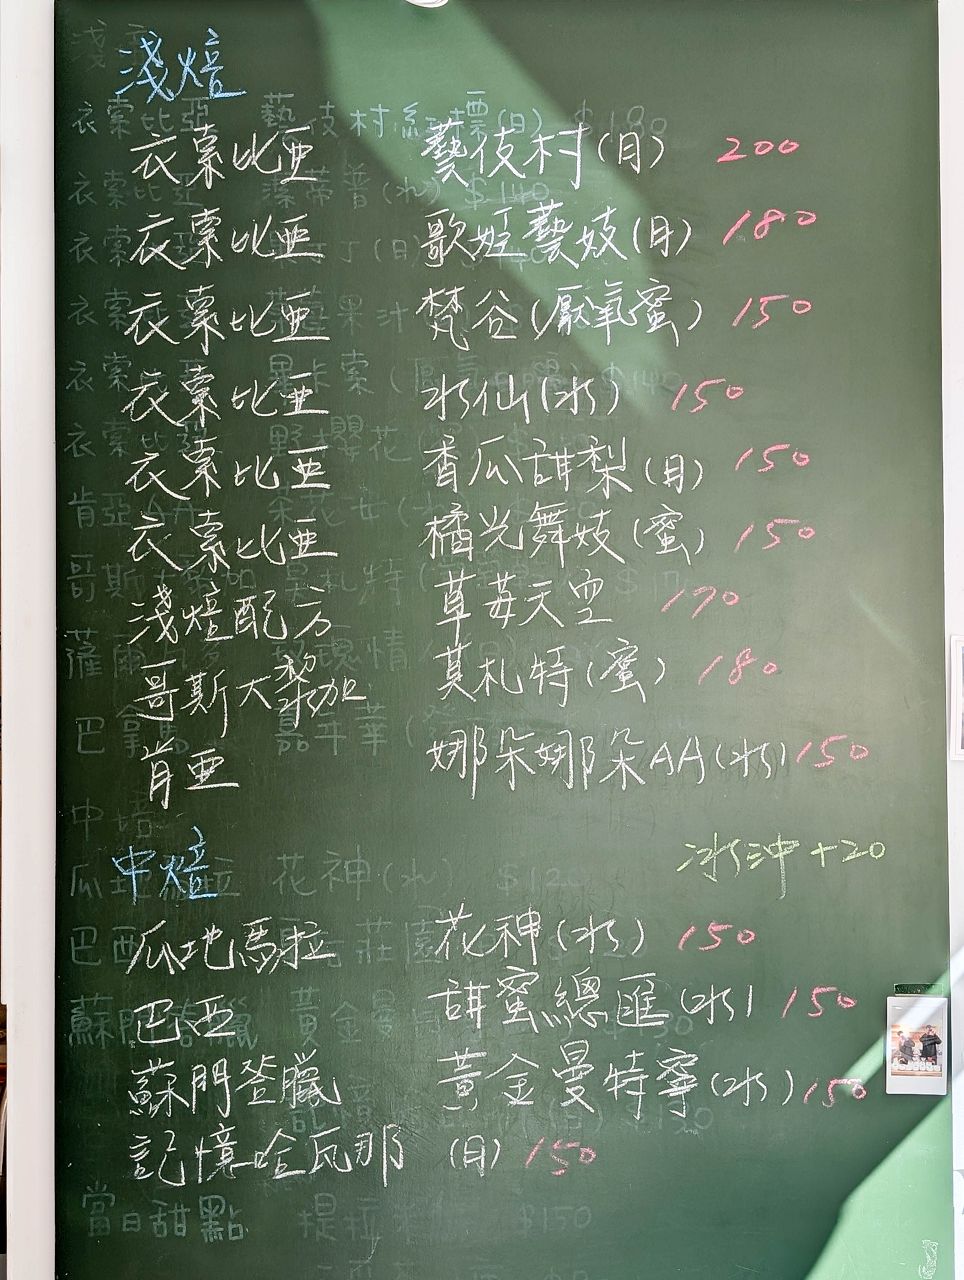 淺焙
衣索比亞 藝伎村(日) 200
衣索比亞 歌姬藝妓(日) 180
衣索比亞 梵谷(厭氧蜜) 150
衣索比亞 水仙(水) 150
衣索比亞 香瓜甜梨(日) 150
衣索比亞 橘光舞妓(蜜) 150
淺焙配方 草莓天空 170
哥斯大黎加 莫札特(蜜) 180
肯亞 娜朵娜朵AA(水) 150
冰沖+20
中焙
瓜地馬拉 花神(水) 150
巴西 甜蜜總匯(水) 150
蘇門答臘 黃金曼特寧(水) 150
記憶哈瓦那 (日) 150
當日甜點 提拉米 $150